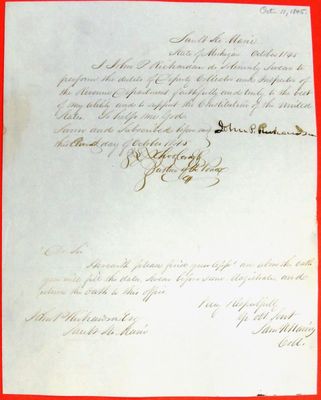 Oct 11, 1845.
Sault Ste Marie
State of Michigan October 1845
I John P Richardson do Solemnly Swear to
perform the duties of Deputy Collector and Inspector of
the Revenue Department faithfully and truly to the best
of my ability and to support the Constitution of the United
States. So helps me God.
Sworn and Subscribed before me John P. Richardson
this day of October 1845
Justice of the Peace
Dr Sir
Herewith please find your appt. an above the oath
you will fill the date, Swear before Some Magistrate and
return the oath to this office
Very Respectfully
Yr obt Svt
John P Richardson Esq
Sault Ste Marie
Coll.